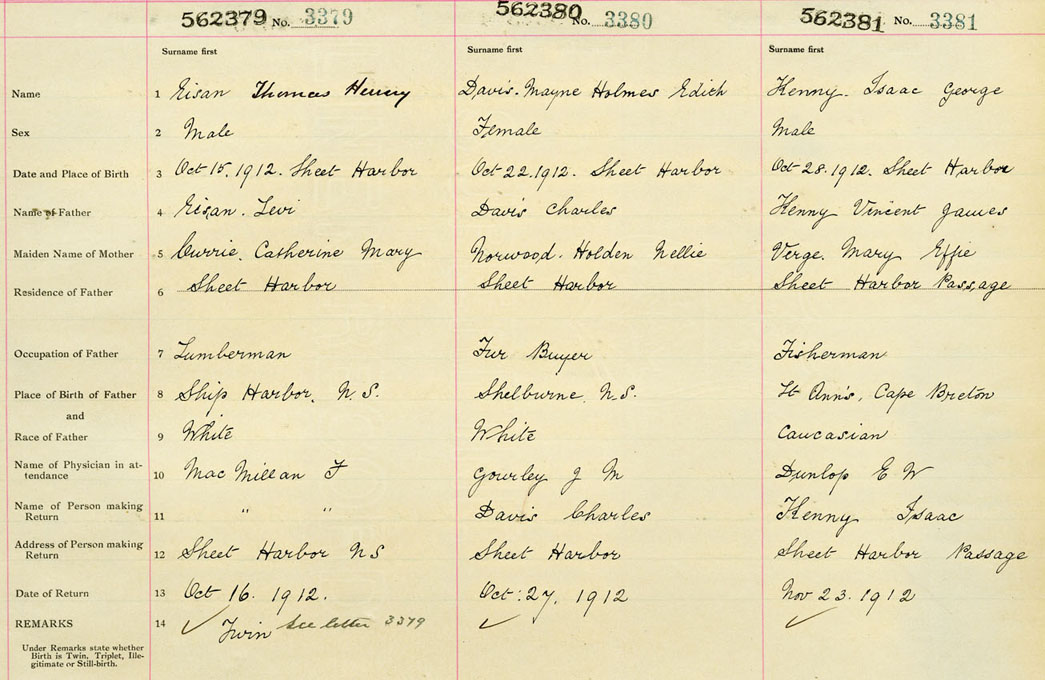 562379 No. 3379 562380 No. 3380 562381 No. 3381
Surname first Surname first Surname first
Name 1 Eisan Thomas Henry Davis. Mayne Holmes Edith Kenny. Isaac George
Sex 2 Male Female Male
Date and Place of Birth 3 Oct 15. 1912. Sheet Harbor Oct 22. 1912. Sheet Harbor Oct 28. 1912. Sheet Harbor
Name of Father 4 Eisan. Levi Davis Charles Kenny Vincent James
Maiden Name of Mother 5 Currie. Catherine Mary Norwood. Holden Nellie Verge. Mary Effie
Residence of Father 6 Sheet Harbor Sheet Harbor Sheet Harbor Passage
Occupation of Father 7 Lumberman Fur Buyer Fisherman
Place of Birth of Father 8 Ship Harbor. N.S. Shelburne N.S. St Ann's, Cape Breton
and
Race of Father 9 White White Caucasian
Name of Physician in at- 10 MacMillan F Gourley J M Dunlop E W
tendance
Name of Person making 11 " " Davis Charles Kenny Isaac
Return
Address of Person making 12 Sheet Harbor NS Sheet Harbor Sheet Harbor Passage
Return
Date of Return 13 Oct 16. 1912. Oct. 27, 1912 Nov 23. 1912
REMARKS 14 ✓ Twin See letter 3379 ✓ ✓
Under Remarks state whether
Birth is Twin, Triplet, Ille-
gitimate or Still-birth.